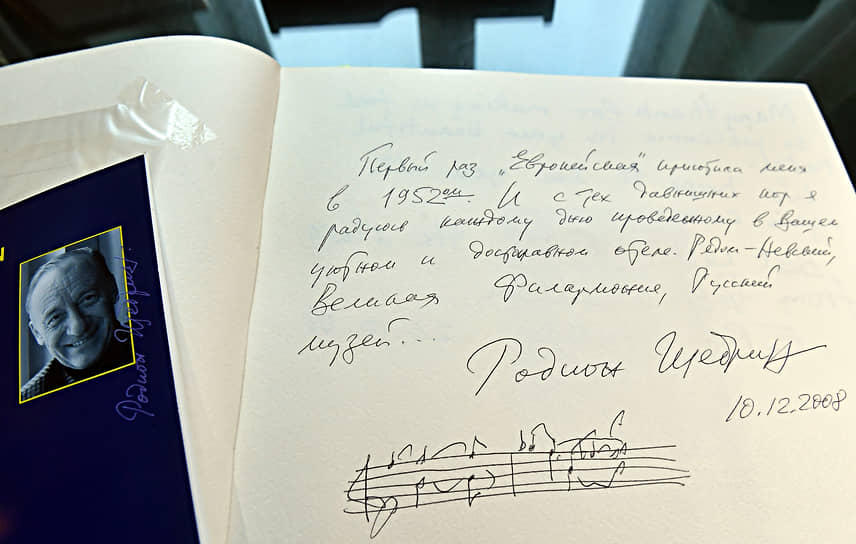 Первый раз „Европейская" приютила меня
в 1952ом. И с тех давнишних пор я
радуюсь каждому дню проведенному в Вашем
уютном и достославном отеле. Рядом – Невский,
Великая Филармония, Русский
музей...
Родион Щедрин
10.12.2008
Родион Щедрин